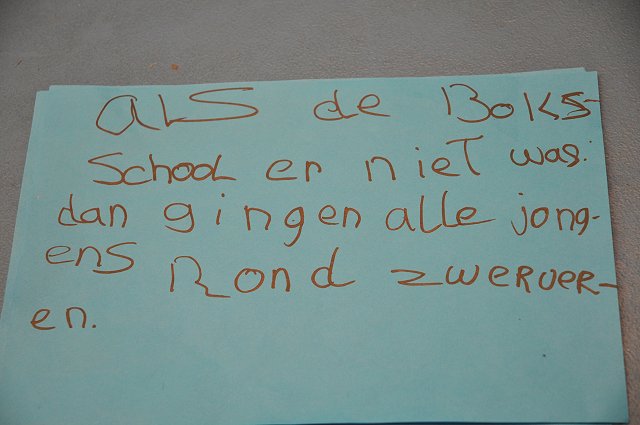 als de Boks-
School er niet was.
dan gingen alle jong-
ens Rond zwerver-
en.